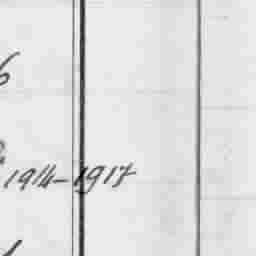 6
1914-1917